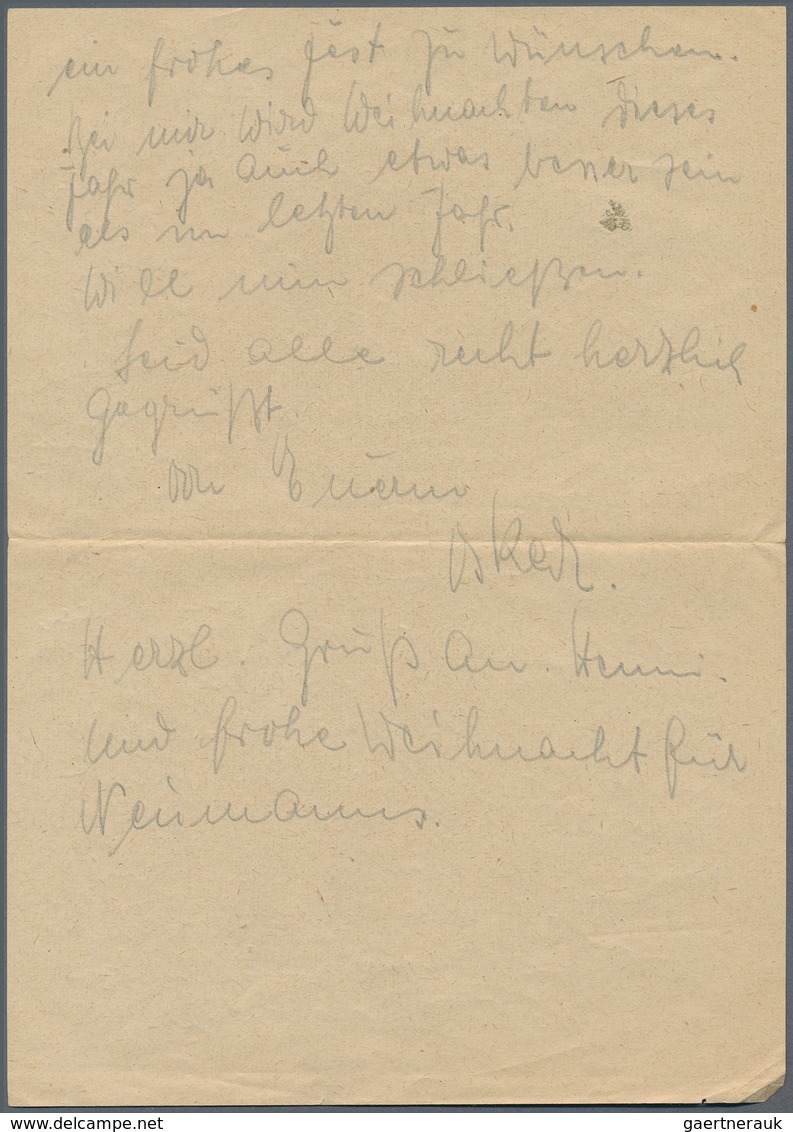 ein frohes Fest zu wünschen.
Bei mir wird Weihnachten dieses
Jahr ja auch etwas besser sein
als im letzten Jahr.
Will nun schließen.
Seid alle recht herzlich
Gegrüßt
von Euerm
Oskar.
Herzl. Gruß an. Henni.
und frohe Weihnacht für
Neumanns.
delcampe.net
gaertnerauk